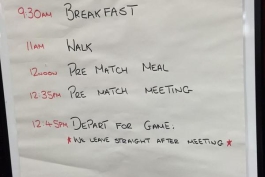 9:30AM BREAKFAST
11AM WALK
12:00 PRE MATCH MEAL
12:35PM PRE MATCH MEETING
12:45PM DEPART FOR GAME.
* WE LEAVE STRAIGHT AFTER MEETING *